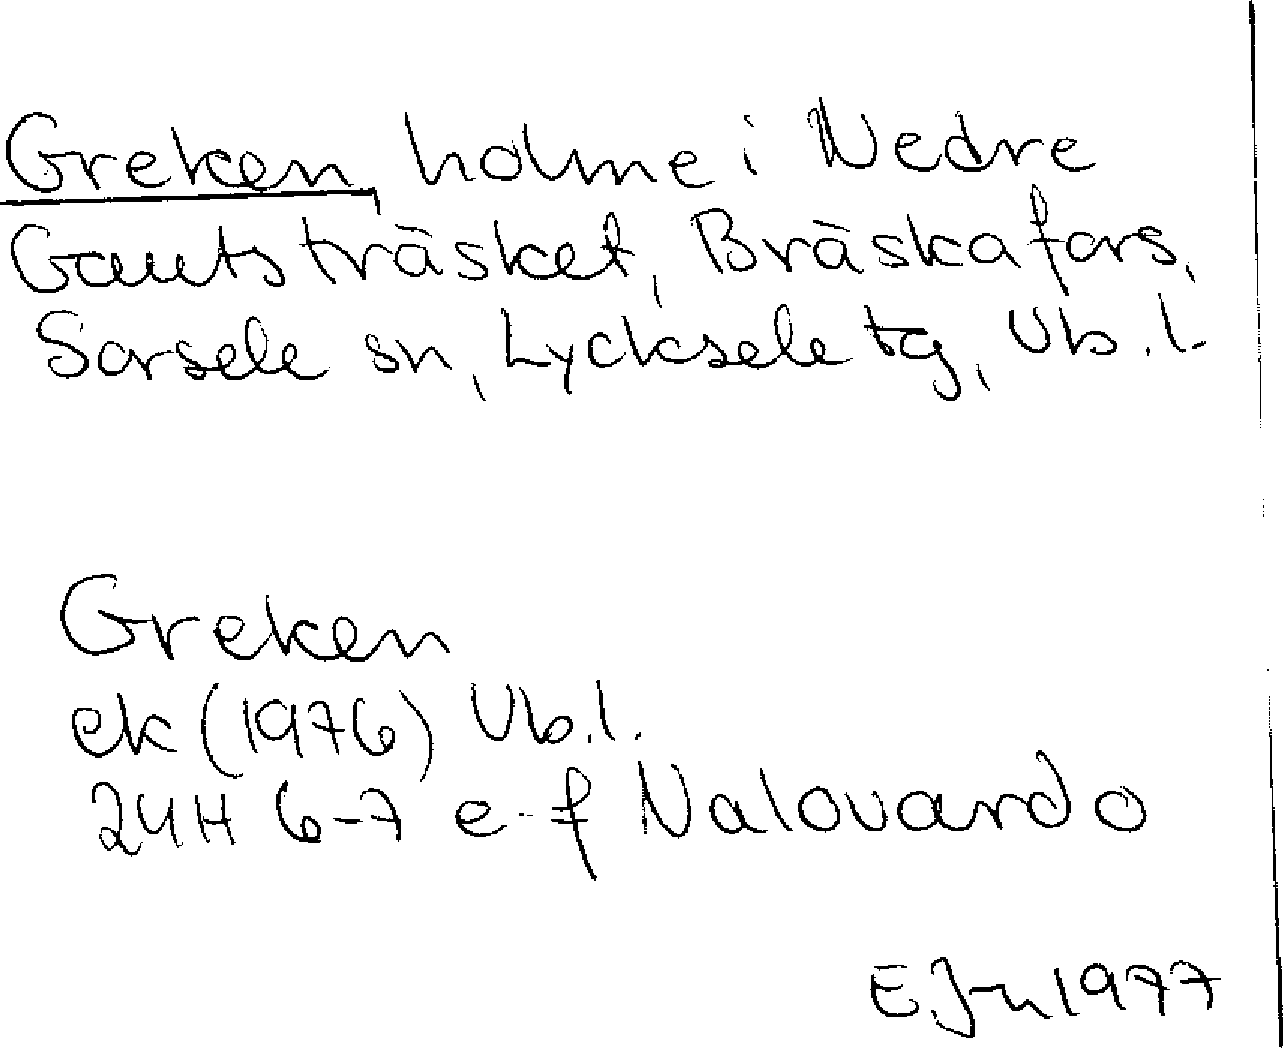 Greken, holme i Nedre
Gautsträsket, Bräskafors,
Sorsele sn, Lycksele tg, Vb.l.
Greken
ek (1976) Vb.l.
24H 6-7 e-f Nalovardo
E.J-n 1977